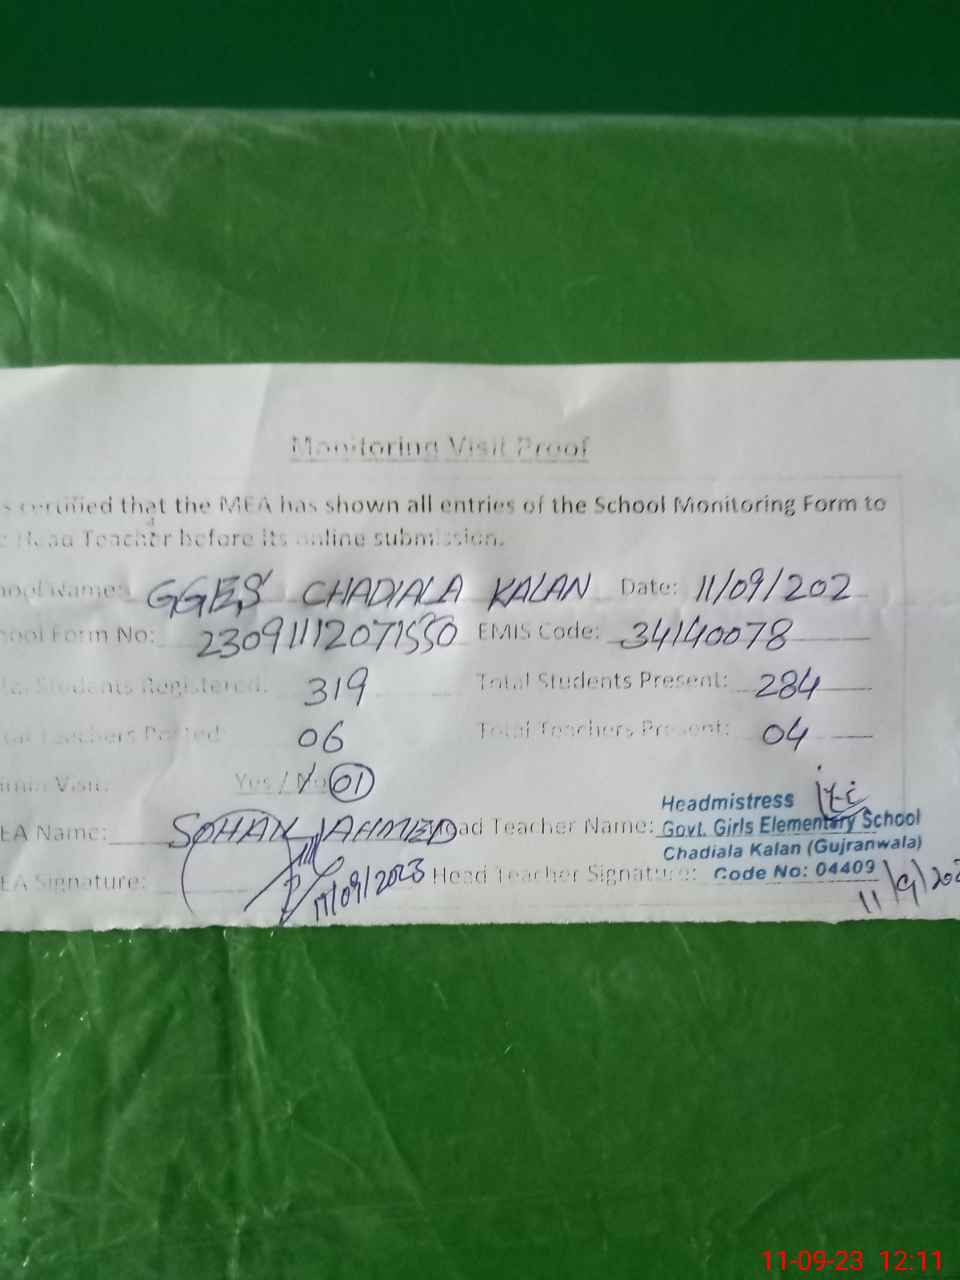 Monitoring Visit Proof
s certified that the MEA has shown all entries of the School Monitoring Form to
Head Teacher before its online submission.
ool Name: GGES CHADIALA KALAN Date: 11/09/202
ool Form No: EMIS Code: 34140078
Students Registered: 319 Total Students Present: 284
Teachers Posted: 06 Total Teachers Present: 04
Visit: Yes / No 01
EA Name: SOHAN AHMED ad Teacher Name: Headmistress
Govt. Girls Elementary School
Chadiala Kalan (Gujranwala)
Code No: 04409
EA Signature: 11/09/2023 Head Teacher Signature: 11/9/202
11-09-23 12:11